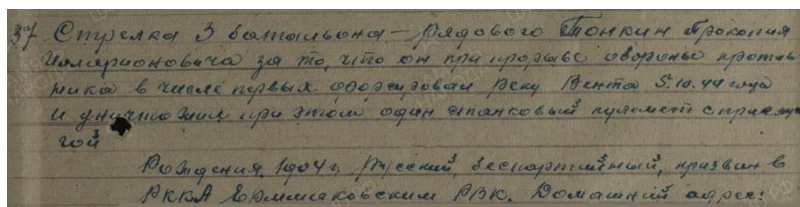 37 Стрелка 3 батальона – рядового Тонкин Прокопия
Илларионовича за то, что он при прорыве обороны против
ника в числе первых форсировал реку Вента 5.10.44 года
и уничтожил при этом один станковый пулемет с прислу
гой
Рождения 1904 г, русский, беспартийный, призван в
РККА РВК. Домашний адрес: